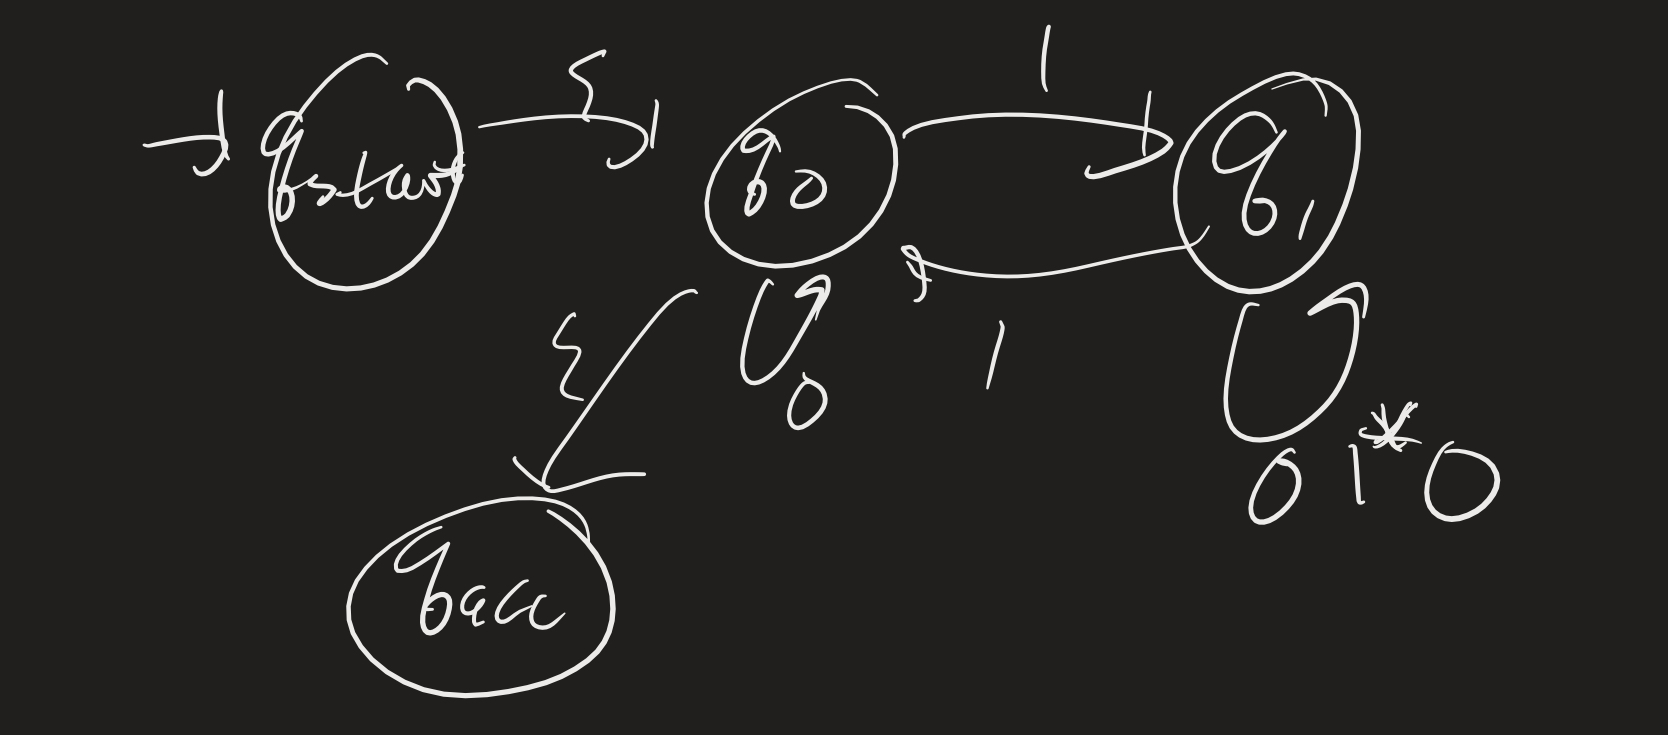 ε
1
qstart
q0
q1
ε
0
1
01*0
qacc